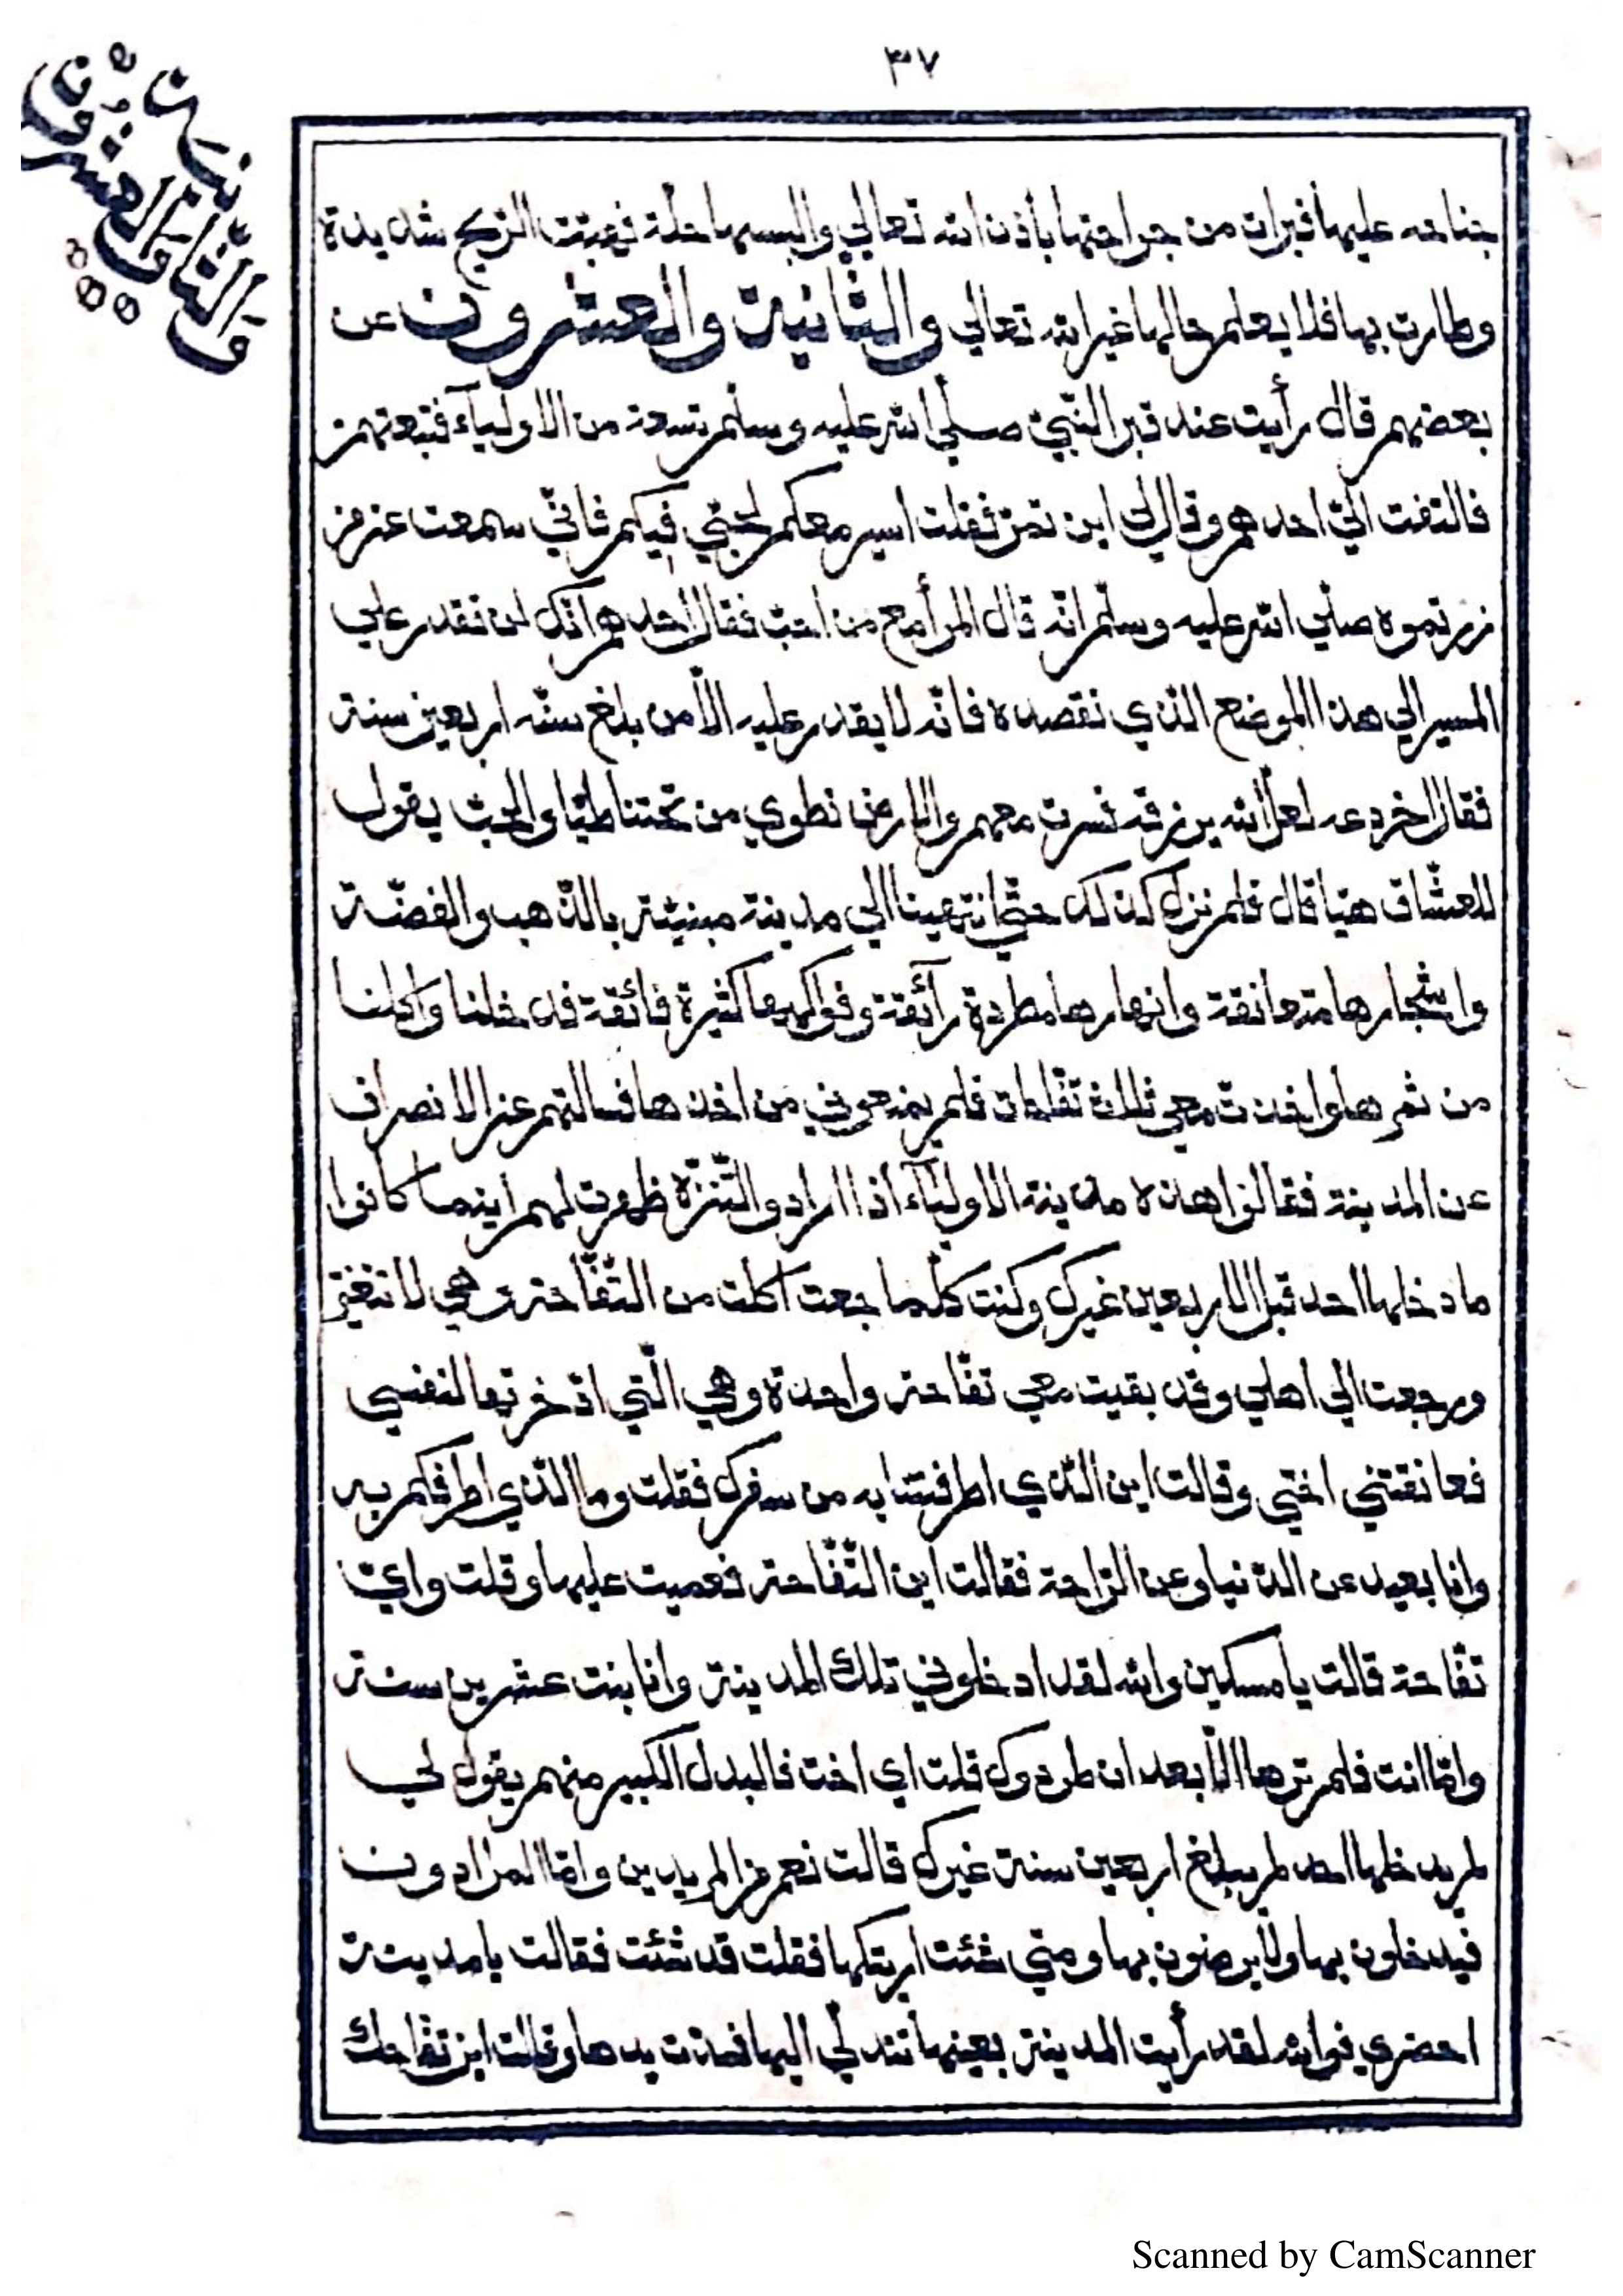 ٣٧
والثانية والعشرون
جناحه عليها فبرات من جراحتها بأذن الله تعالي والبسها حلة فهبّت الرّيح شديدة
وطارت بها فلا يعلم حالها غير الله تعالي والثانية والعشرون عن
بعضهم قال رأيت عند قبر النّبيّ صلّي الله عليه وسلّم تسعة من الاوليآء فتبعتهم
فالتفت اليّ احدهم وقال لي اين تمرّ فقلت اسير معكم لحبّي فيكم فانّي سمعت عن من
زرتموه صلّي الله عليه وسلّم انّه قال المرأ مع من احبّ فقال احدهم انّك لن تقدر علي
المسير الي هذا الموضع الّذي نقصده فانّه لا يقدر عليه الّا من بلغ سنّه اربعين سنة
فقال اخر دعه لعلّ الله يرزقه فسرت معهم والارض تطوي من تحتنا طيّا والحبّ يقول
للعشّاق هيّا قال فلم نزل كذلك حتّي انتهينا الي مدينة مبنيّة بالذّهب والفضّة
واشجارها متعانقة وانهارها مطردة رآئقة وفواكهها كثيرة فائقة فدخلنا واكلنا
من ثمرها واخذت معي ثلاث تفّاحات فلم يمنعوني من اخذها فسالتهم عن الانصراف
عن المدينة فقالوا هذه مدينة الاوليآء اذا ارادوا التّنزّه ظهرت لهم اينما كانوا
ما دخلها احد قبل الاربعين غيرك وكنت كلّما جعت اكلت من التّفّاحة وهي لا تتغيّر
ورجعت الي اهلي وقد بقيت معي تفّاحة واحدة وهي الّتي اذخرتها لنفسي
فعانقتني اختي وقالت اين الّذي اطرفتنا به من سفرك فقلت وما الّذي اطرفكم به
وانا بعيد عن الدّنيا وعن الرّاحة فقالت اين التّفّاحة فعميت عليها وقلت وايّ
تفّاحة قالت يا مسكين والله لقد ادخلوني تلك المدينة وانا بنت عشرين سنة
وامّا انت فلم ترها الّا بعد ان طردوك قلت اي اخت فالبدل الكبير منهم يقول لي
لم يدخلها احد لم يبلغ اربعين سنة غيرك قالت نعم من المريدين وامّا المرادون
فيدخلون بها ولا يرضون بها ومتي شئت اريتكها فقلت قد شئت فقالت يا مدينة
احضري فوالله لقد رأيت المدينة بعينها تتدلّي اليها فمدّت يدها وقالت اين تفّاحك
Scanned by CamScanner